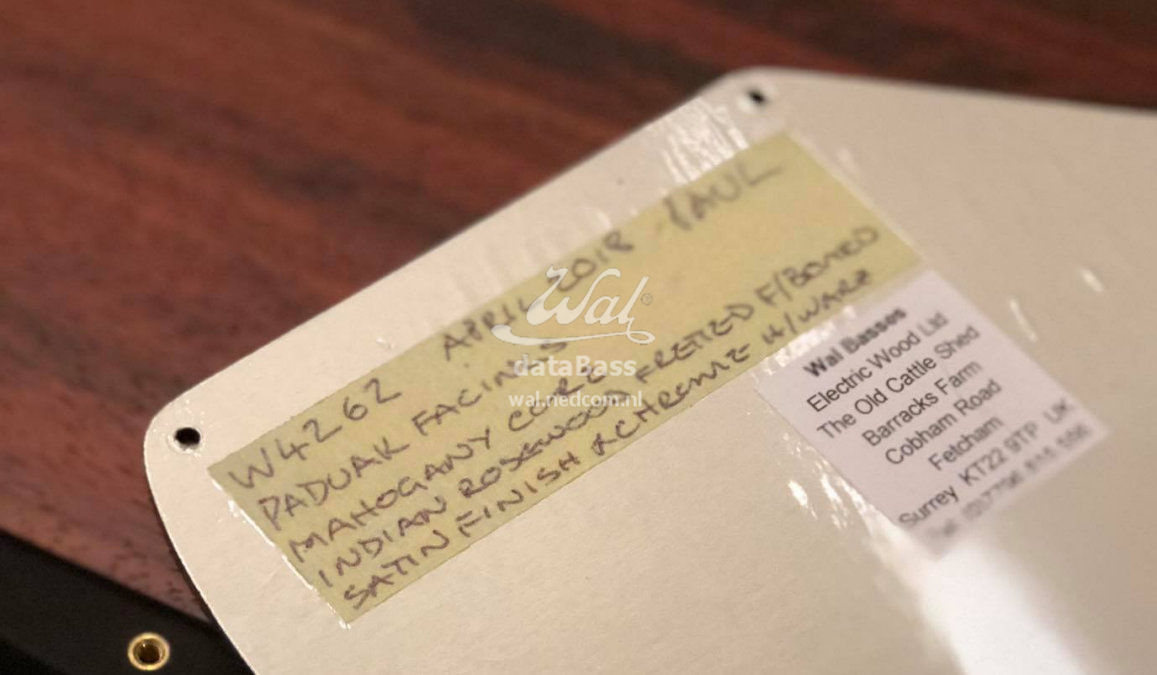 W4262 APRIL 2018 - PAUL
PADUAK FACINGS
MAHOGANY CORE
INDIAN ROSEWOOD FRETTED F/BOARD
SATIN FINISH & CHROME H/WARE
Wal Basses
Electric Wood Ltd
The Old Cattle Shed
Barracks Farm
Cobham Road
Fetcham
Surrey KT22 9TP UK
Wal®
dataBass
wal.nedcom.nl